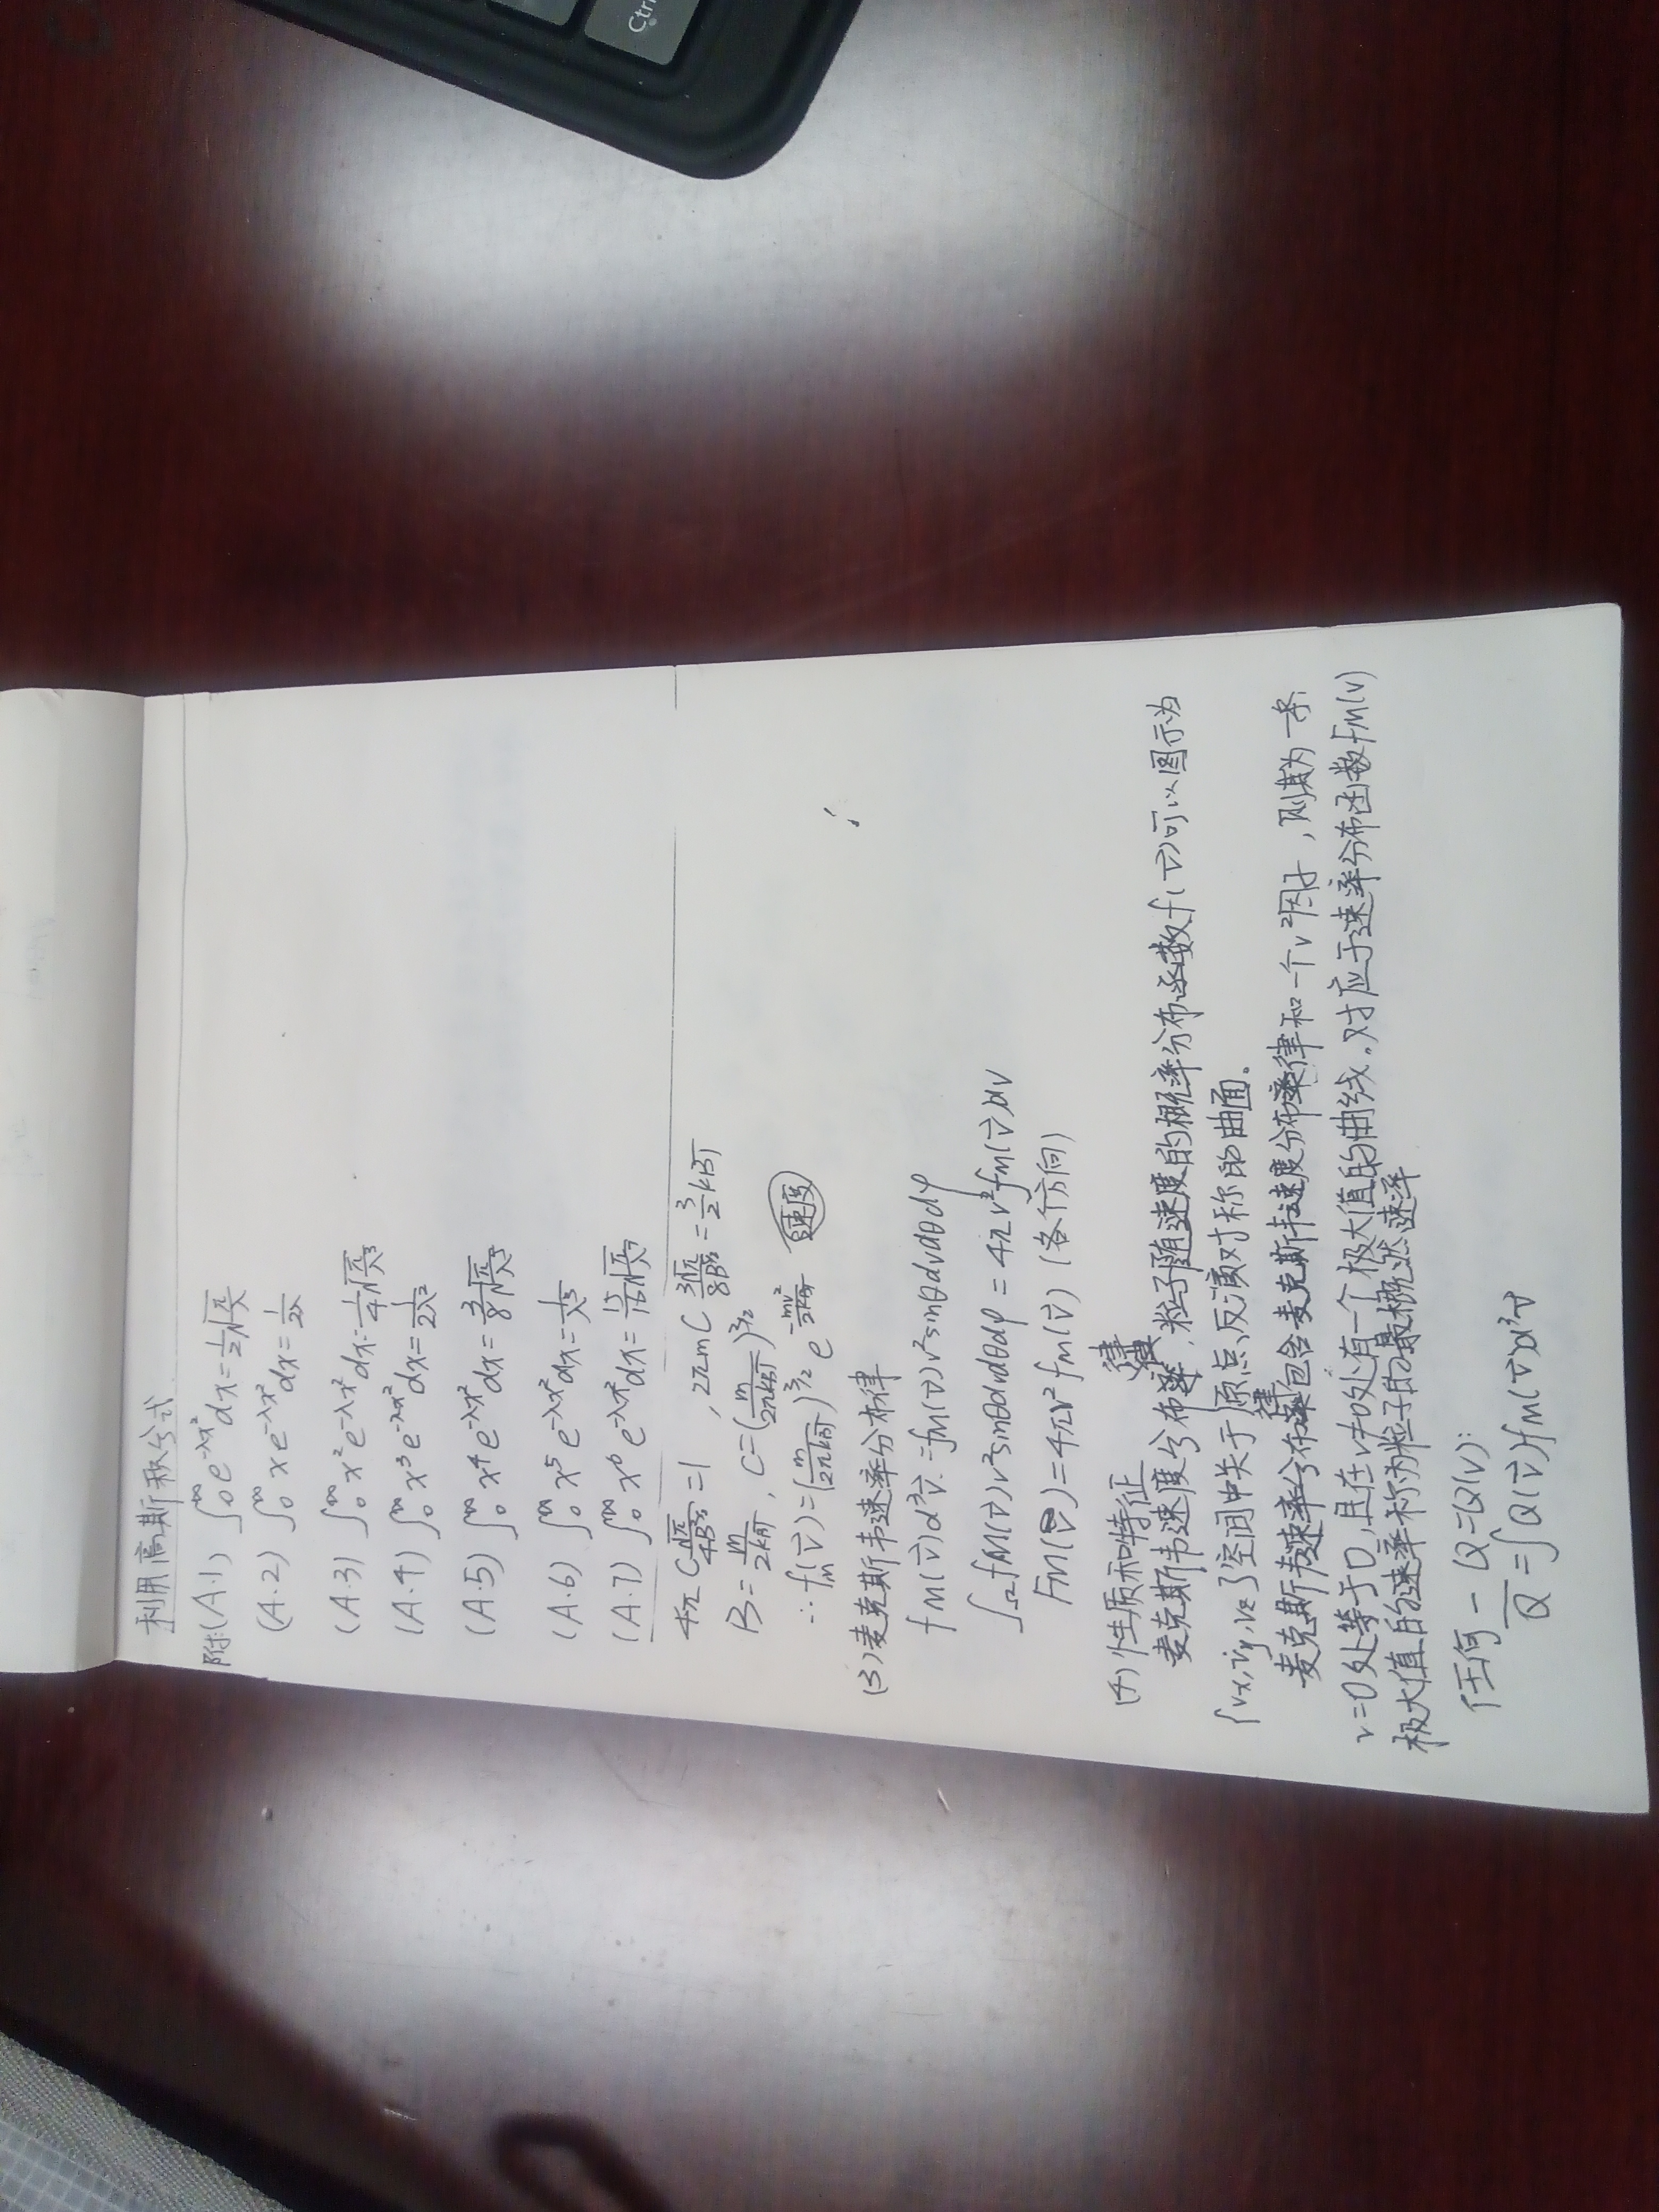 Ctrl
利用高斯积分式
附:(A.1) ∫₀^∞ e^{-λx²}dx=½√(π/λ)
(A.2) ∫₀^∞ x e^{-λx²}dx=1/(2λ)
(A.3) ∫₀^∞ x² e^{-λx²}dx=¼√(π/λ³)
(A.4) ∫₀^∞ x³ e^{-λx²}dx=1/(2λ²)
(A.5) ∫₀^∞ x⁴ e^{-λx²}dx=3/8√(π/λ⁵)
(A.6) ∫₀^∞ x⁵ e^{-λx²}dx=1/λ³
(A.7) ∫₀^∞ x⁶ e^{-λx²}dx=15/16√(π/λ⁷)
4π C √π/(4B^{3/2})=1, 2πmC 3√π/(8B^{5/2})=3/2 kBT
B=m/(2kBT), C=(m/(2πkBT))^{3/2}
∴ fm(v⃗)=(m/(2πkBT))^{3/2} e^{-mv²/(2kBT)} 速度
(3)麦克斯韦速率分布律
fM(v⃗)d³v⃗=fM(v⃗)v²sinθdvdθdφ
∫Ω fM(v⃗)v²sinθdvdθdφ=4πv²fM(v⃗)dv
Fm(v)=4πv²fm(v⃗) (各个方向)
(4)性质和特征
麦克斯韦速度分布律,粒子随速度的概率分布函数f(v⃗)可以图示为
{vx,vy,vz}空间中关于原点反演对称的曲面。
麦克斯韦速率分布律包含麦克斯韦速度分布律和一个v²因子,则其为一条
v=0处等于0,且在v≠0处有一个极大值的曲线。对应于速率分布函数Fm(v)
极大值的速率称为粒子的最概然速率
任何一Q=Q(v):
Q̄=∫Q(v⃗)fm(v⃗)d³v